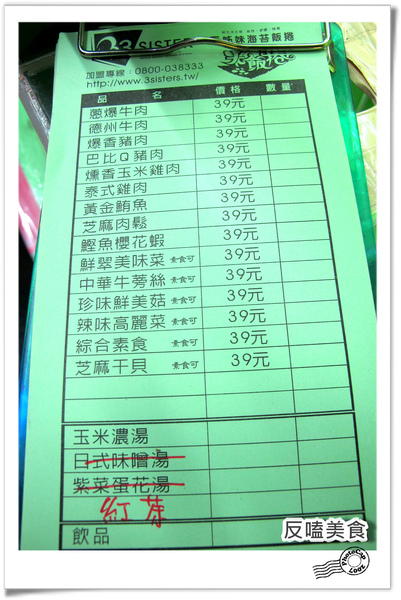 3SISTERS
姊妹海苔飯捲
加盟專線：0800-038333
http://www.3sisters.tw/
品 名 價格 數量
蔥爆牛肉 39元
德州牛肉 39元
爆香豬肉 39元
巴比Q豬肉 39元
燻香玉米雞肉 39元
泰式雞肉 39元
黃金鮪魚 39元
芝麻肉鬆 39元
鰹魚櫻花蝦 39元
鮮翠美味菜 素食可 39元
中華牛蒡絲 素食可 39元
珍味鮮美菇 素食可 39元
辣味高麗菜 素食可 39元
綜合素食 素食可 39元
芝麻干貝 素食可 39元
玉米濃湯
日式味噌湯
紫菜蛋花湯
紅芽
飲品
反嗑美食
PhotoCap
Look